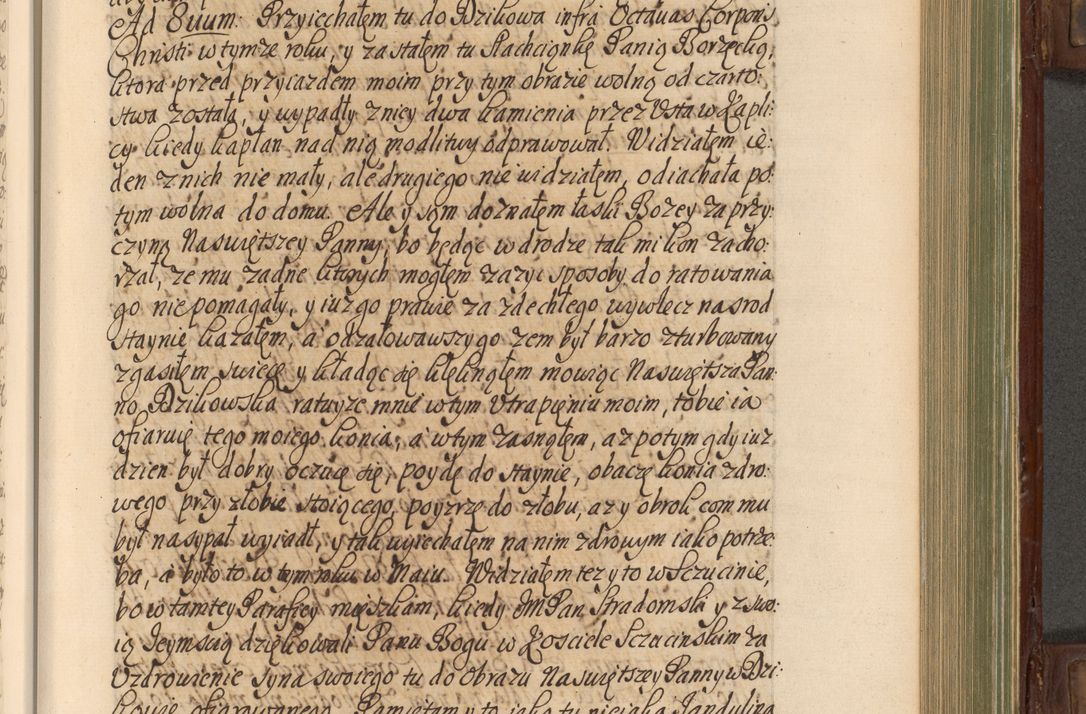 Ad 8uum: Przyiechałęm tu do Dzikowa infra Octavas Corporis
Christi w tymze roku, y zastałem tu Slachciąnkę Panią Borzęcką,
ktora przed przyiazdem moim przy tym obrazie wolną od czarto:
stwa została, y wypadły z niey dwa kamienia przez Usta w Kapli:
cy kiedy kapłan nad nią modlitwy odprawował. Widziałem ie:
den z nich nie mały, ale drugiego nie widziałęm, odiachała po:
tym wolna do domu. Ale y sąm doznałęm łaski Bozey za przy:
czyną Naswiętszey Panny, bo będąc w drodze tak mi kon zacho:
rzał, ze mu zadne ktorych mogłęm zazyc sposoby do ratowania
go nie pomagały, y iuz go prawie za zdechłego wywlecz na srod
staynie kazałęm, a odzałowawszy go zem był barzo zturbowany
zgasiłęm swiecę y kładąc się klęknąłęm mowiąc Naswiętsza Pan:
no Dzikowska ratuyze mnie w tym Utrapięniu moim, tobie ia
ofiaruię tego moiego konia, a w tym zasnąłęm, az potym gdy iuz
dzien był dobry oczucę się, poydę do staynie, obaczę konia zdro:
wego przy złobie stoiącego, poyzrzę do złobu, az y obrok com mu
był nasypał wyiadł, y tak wyiechałęm na nim zdrowym iako potrze:
ba, a było to w tym roku w Maiu. Widziałem tez y to w Sczucinie,
bo w tamtey Parafiey mięszkam, kiedy JMPan Stradomski y z swo:
ią Jeymscią dziękowali Panu Bogu w Kosciele Sczucinskim za
Uzdrowienie syna swoiego tu do Obrazu Naswiętszey Panny w Dzi:
kowie ofiarowanego. Pamiętam y to iako tu nieiaka Jandulina